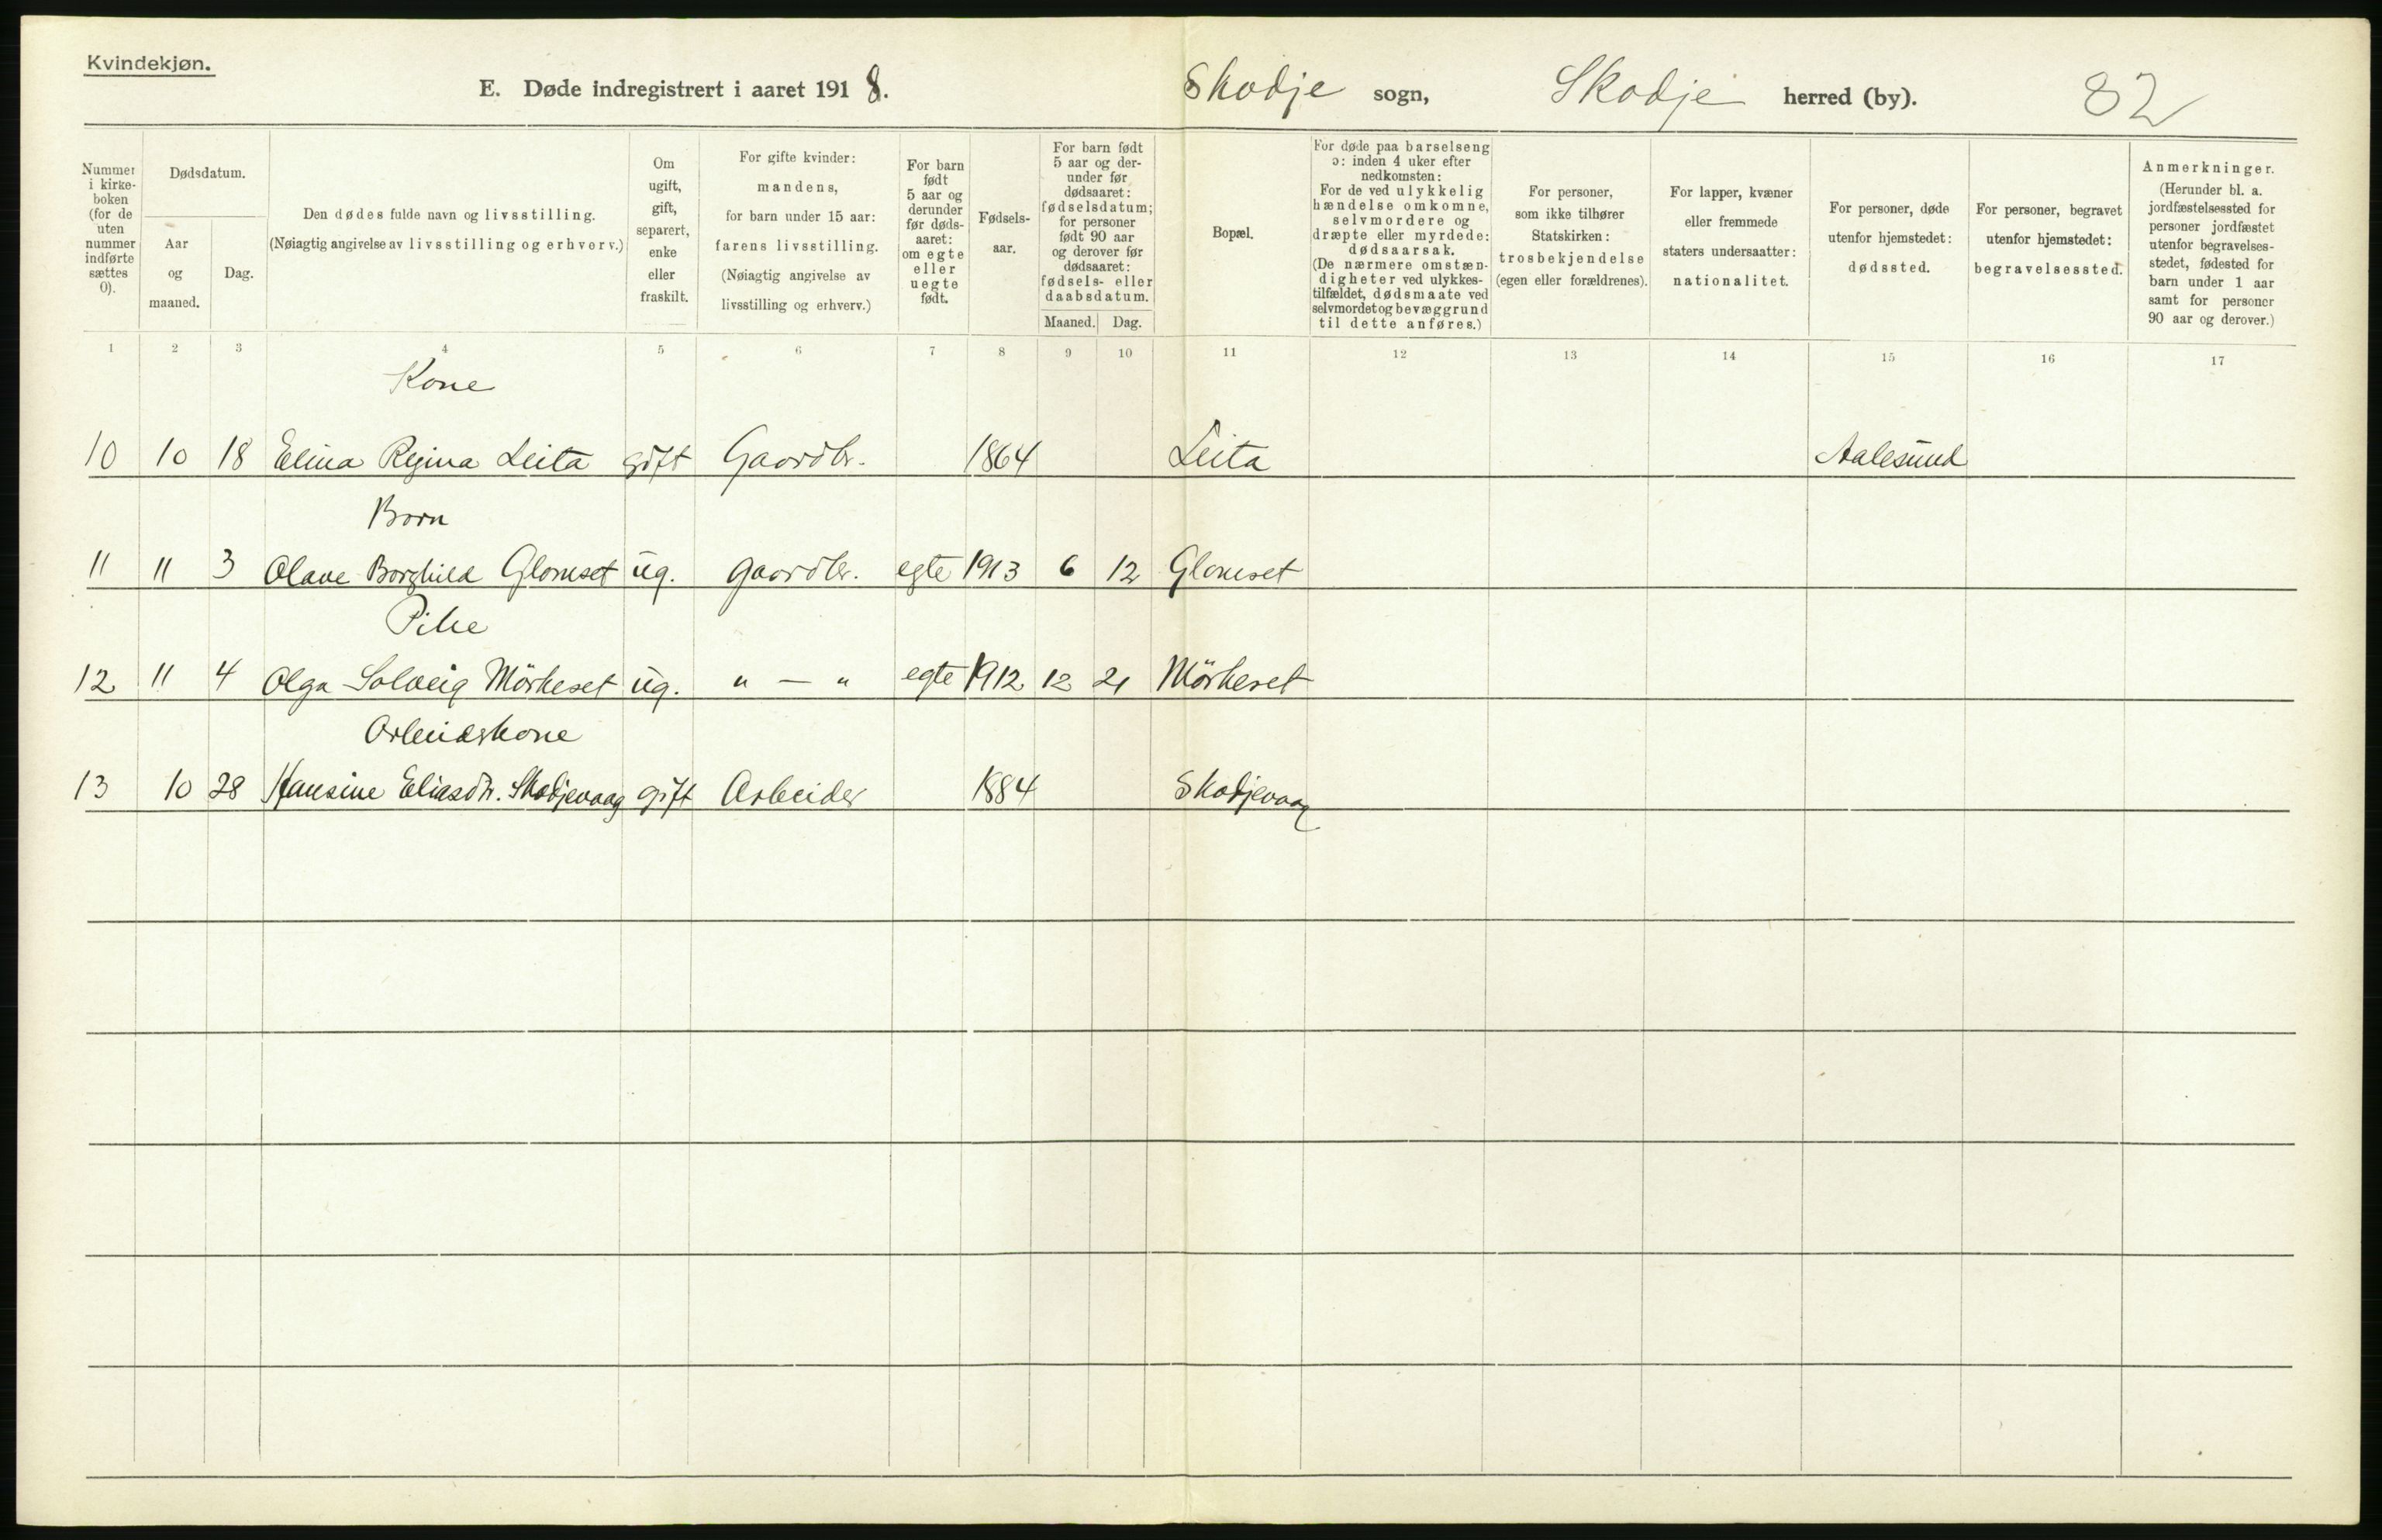 Kvindekjøn.
E. Døde indregistrert i aaret 1918.
Skodje sogn, Skodje herred (by). 82
Nummer i kirkeboken (for de uten nummer indførte sættes 0).
Dødsdatum.
Aar og maaned.
Dag.
Den dødes fulde navn og livsstilling.
(Nøiagtig angivelse av livsstilling og erhverv.)
Om ugift, gift, separert, enke eller fraskilt.
For gifte kvinder: mandens, for barn under 15 aar: farens livsstilling. (Nøiagtig angivelse av livsstilling og erhverv.)
For barn født 5 aar og derunder før dødsaaret: om egte eller uegte født.
Fødselsaar.
For barn født 5 aar og derunder før dødsaaret: fødselsdatum; for personer født 90 aar og derover før dødsaaret: fødsels- eller daabsdatum.
Maaned. Dag.
Bopæl.
For døde paa barselseng ɔ: inden 4 uker efter nedkomsten: For de ved ulykkelig hændelse omkomne, selvmordere og dræpte eller myrdede: dødsaarsak. (De nærmere omstændigheter ved ulykkestilfældet, dødsmaate ved selvmordet og bevæggrund til dette anføres.)
For personer, som ikke tilhører Statskirken: trosbekjendelse (egen eller forældrenes).
For lapper, kvæner eller fremmede staters undersaatter: nationalitet.
For personer, døde utenfor hjemstedet: dødssted.
For personer, begravet utenfor hjemstedet: begravelsessted.
Anmerkninger. (Herunder bl. a. jordfæstelsessted for personer jordfæstet utenfor begravelsesstedet, fødested for barn under 1 aar samt for personer 90 aar og derover.)
1 2 3 4 5 6 7 8 9 10 11 12 13 14 15 16 17
Kone
10 10 18 Elina Regina Leita gift Gaardbr. 1864 Leita Aalesund
Barn
11 11 3 Olave Borghild Glomset ug. gaardbr. egte 1913 6 12 Glomset
Pike
12 11 4 Olga Solveig Mörkeset ug. " — " egte 1912 12 21 Mörkeset
Arbeidskone
13 10 28 Hansine Eliasdtr. Skodjevaag gift Arbeider 1884 Skodjevaag